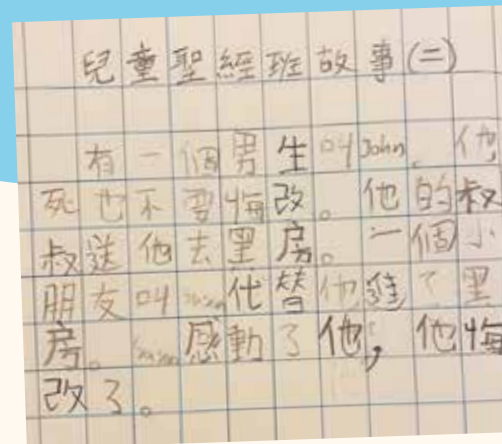 兒童聖經班故事(二)
有一個男生叫John。他
死也不要悔改。他的叔
叔送他去黑房。一個小
朋友叫 代替他進了黑
房。 感動了他，他悔
改了。